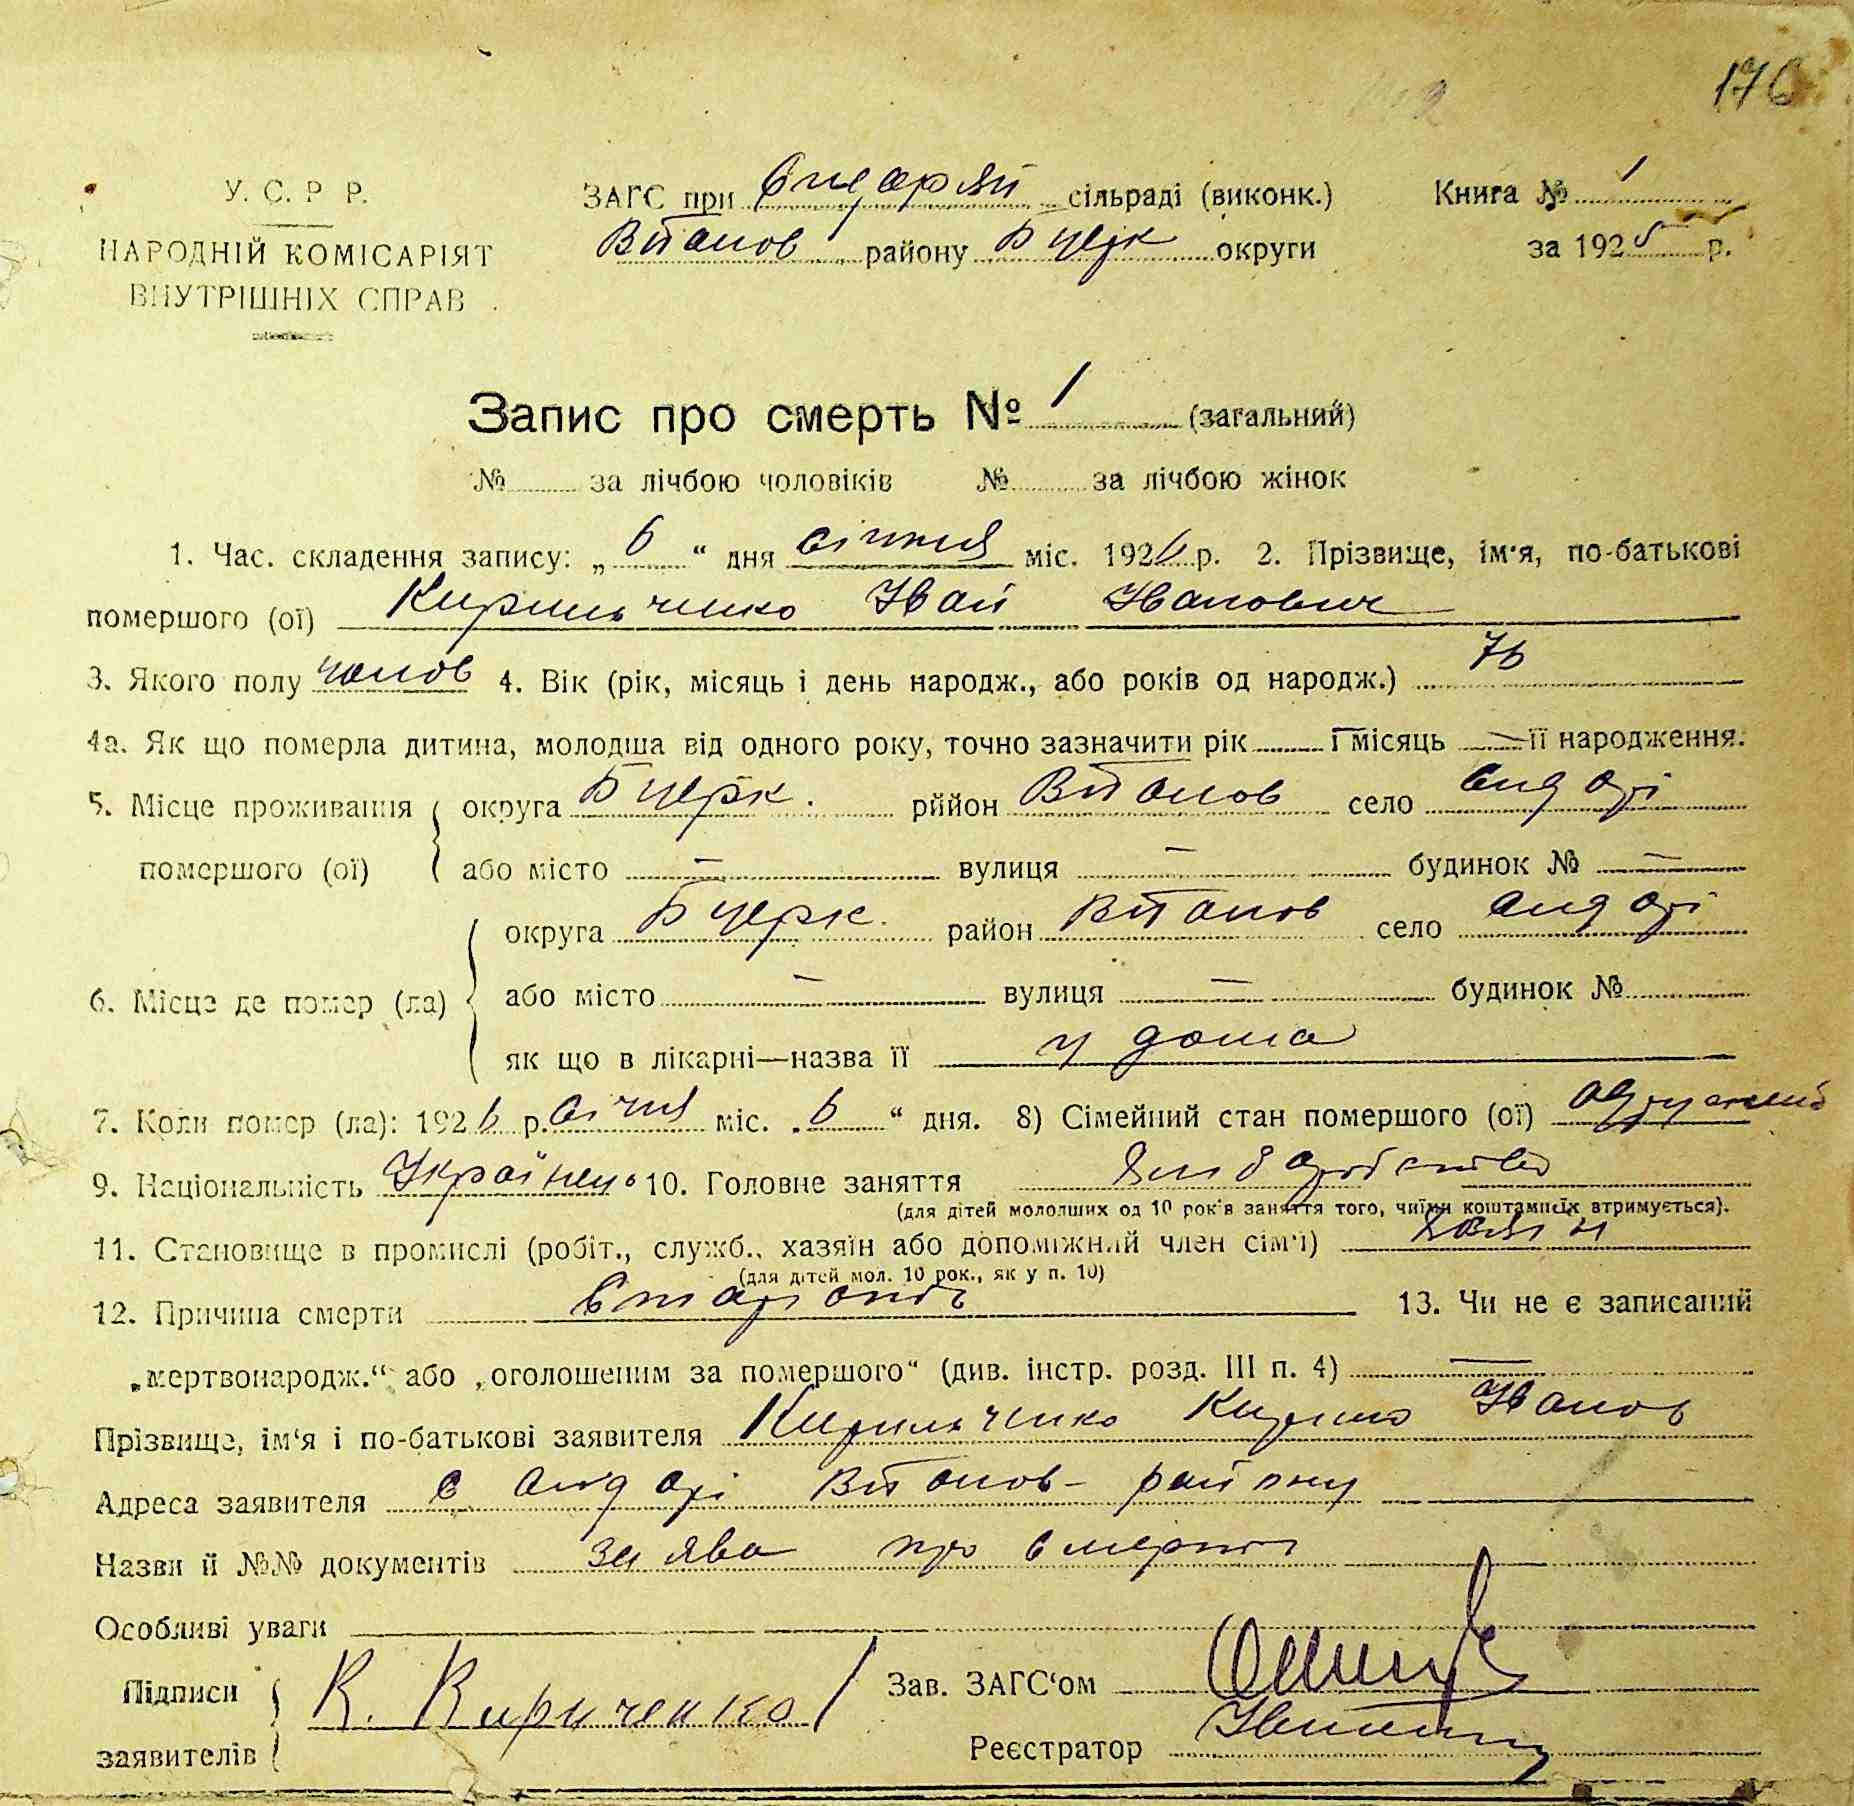 176
У. С. Р Р.
НАРОДНІЙ КОМІСАРІЯТ
ВНУТРІШНІХ СПРАВ
ЗАГС при сільраді (виконк.)
району Бцерк округи
Книга № 1
за 1925 р.
Запис про смерть № 1 (загальний)
№ за лічбою чоловіків № за лічбою жінок
1. Час. складення запису: „ 6 “ дня січня міс. 1926 р. 2. Прізвище, ім'я, по-батькові
помершого (ої) Кирильченко Іван Іванович
3. Якого полу чолов 4. Вік (рік, місяць і день народж., або років од народж.) 76
4а. Як що померла дитина, молодша від одного року, точно зазначити рік — і місяць — її народження.
5. Місце проживання помершого (ої) округа Бцерк. рййон село
або місто — вулиця — будинок № —
6. Місце де помер (ла) округа Бцерк. район село
або місто — вулиця — будинок №
як що в лікарні—назва її у дома
7. Коли помер (ла): 1926 р. січня міс. „6“ дня. 8) Сімейний стан помершого (ої) одружений
9. Національність Українець 10. Головне заняття
(для дітей мололших од 10 рок'в заняття того, чиїми коштами їх втримується).
11. Становище в промислі (робіт., служб., хазяїн або допоміжний член сім'ї) хазяїн
(для дітей мол. 10 рок., як у п. 10)
12. Причина смерти старость 13. Чи не є записаний
„мертвонародж.“ або „оголошеним за помершого“ (див. інстр. розд. III п. 4) —
Прізвище, ім'я і по-батькові заявителя Кирильченко Кирило Іванов
Адреса заявителя с району
Назви й №№ документів заява про смерть
Особливі уваги
Підписи заявителів К. Кириченко
Зав. ЗАГС'ом
Реєстратор